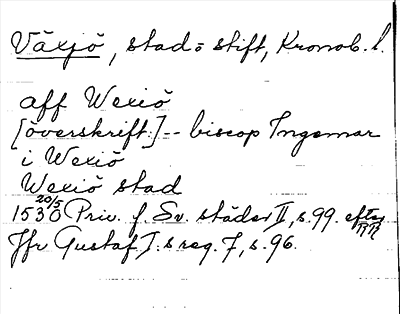 Växjö, stad o stift, Kronob. l.
aff Wexiö
[överskrift:] -- biscop Ingemar
i Wexiö
Wexiö stad
1530 20/5 Priv. f. Sv. städer II, s. 99. efter RR
Jfr Gustaf I:s reg. 7, s. 96.